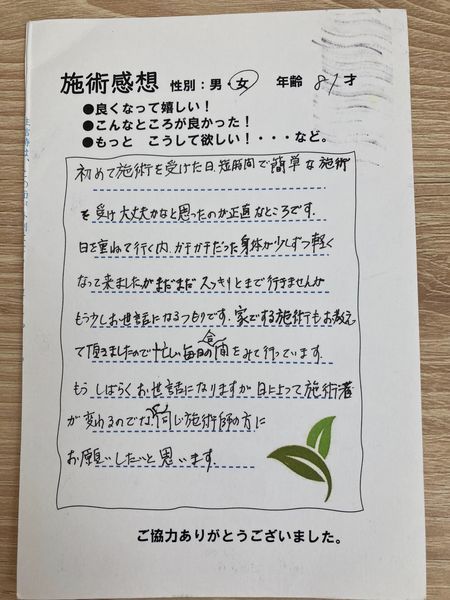 施術感想 性別：男・女 年齢 81才
●良くなって嬉しい！
●こんなところが良かった！
●もっと こうして欲しい！・・・など。
初めて施術を受けた日、短時間で簡単な施術
を受け大丈夫かなと思ったのが正直なところです。
日を重ねて行く内、ガチガチだった身体が少しずつ軽く
なって来ましたがまだまだスッキリとまで行きませんが
もう少しお世話になるつもりです。家でする施術もお教え
て頂きましたので忙しい毎日の合間をみて行っています。
もうしばらくお世話になりますが日によって施術者
が変わるのでなるべく同じ施術師の方に
お願いしたいと思います。
ご協力ありがとうございました。